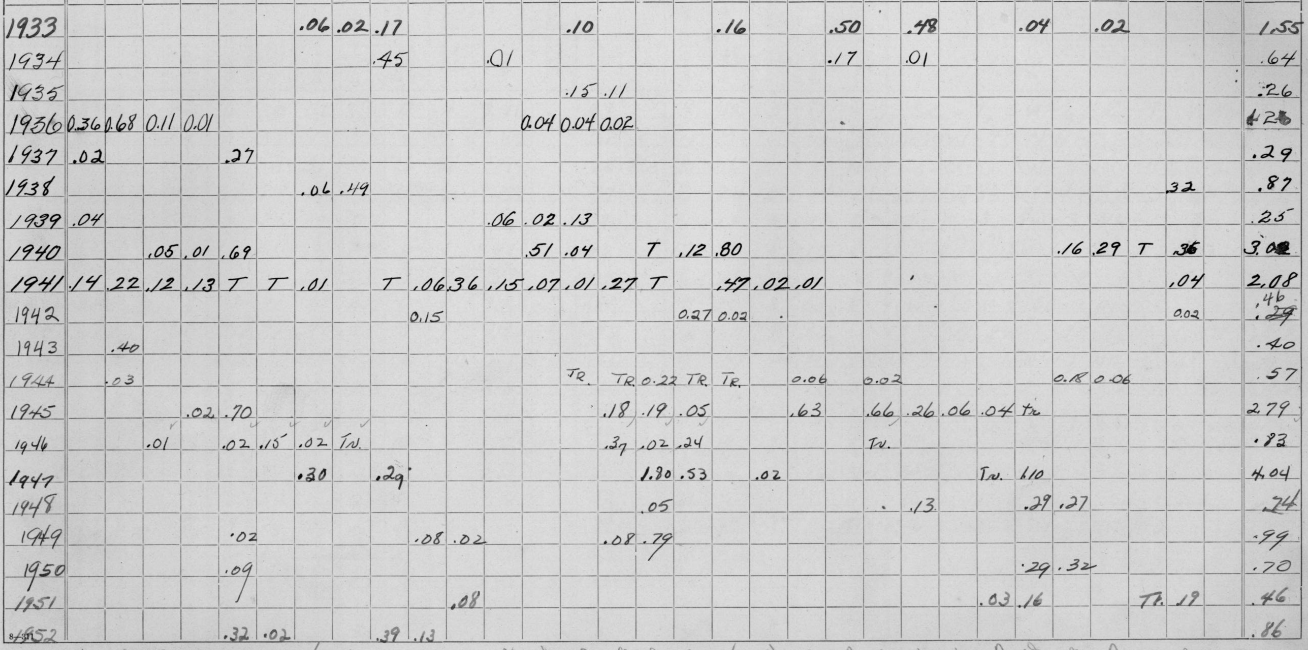 1933 .06 .02 .17 .10 .16 .50 .48 .04 .02 1.55
1934 .45 .01 .17 .01 .64
1935 .15 .11 .26
1936 0.36 0.68 0.11 0.01 0.04 0.04 0.02
1937 .02 .27 .29
1938 .06 .49 32 .87
1939 .04 .06 .02 .13 .25
1940 .05 .01 .69 .51 .04 T .12 .80 .16 .29 T
1941 .14 .22 .12 .13 T T .01 T .06 .36 .15 .07 .01 .27 T .47 .02 .01 .04 2.08
1942 0.15 0.27 0.02 0.02 .46 .29
1943 .40 .40
1944 .03 TR. TR 0.22 TR. TR. 0.06 0.02 0.18 0.06 .57
1945 .02 .70 .18 .19 .05 .63 .66 .26 .06 .04 tr 2.79
1946 .01 .02 .15 .02 Tr. .37 .02 .24 Tr. .83
1947 .30 .29 1.80 .53 .02 Tr. 1.10 4.04
1948 .05 .13 .29 .27 .74
1949 .02 .08 .02 .08 .79 .99
1950 .09 .29 .32 .70
1951 .08 .03 .16 Tr. .19 .46
1952 .32 .02 .39 .13 .86